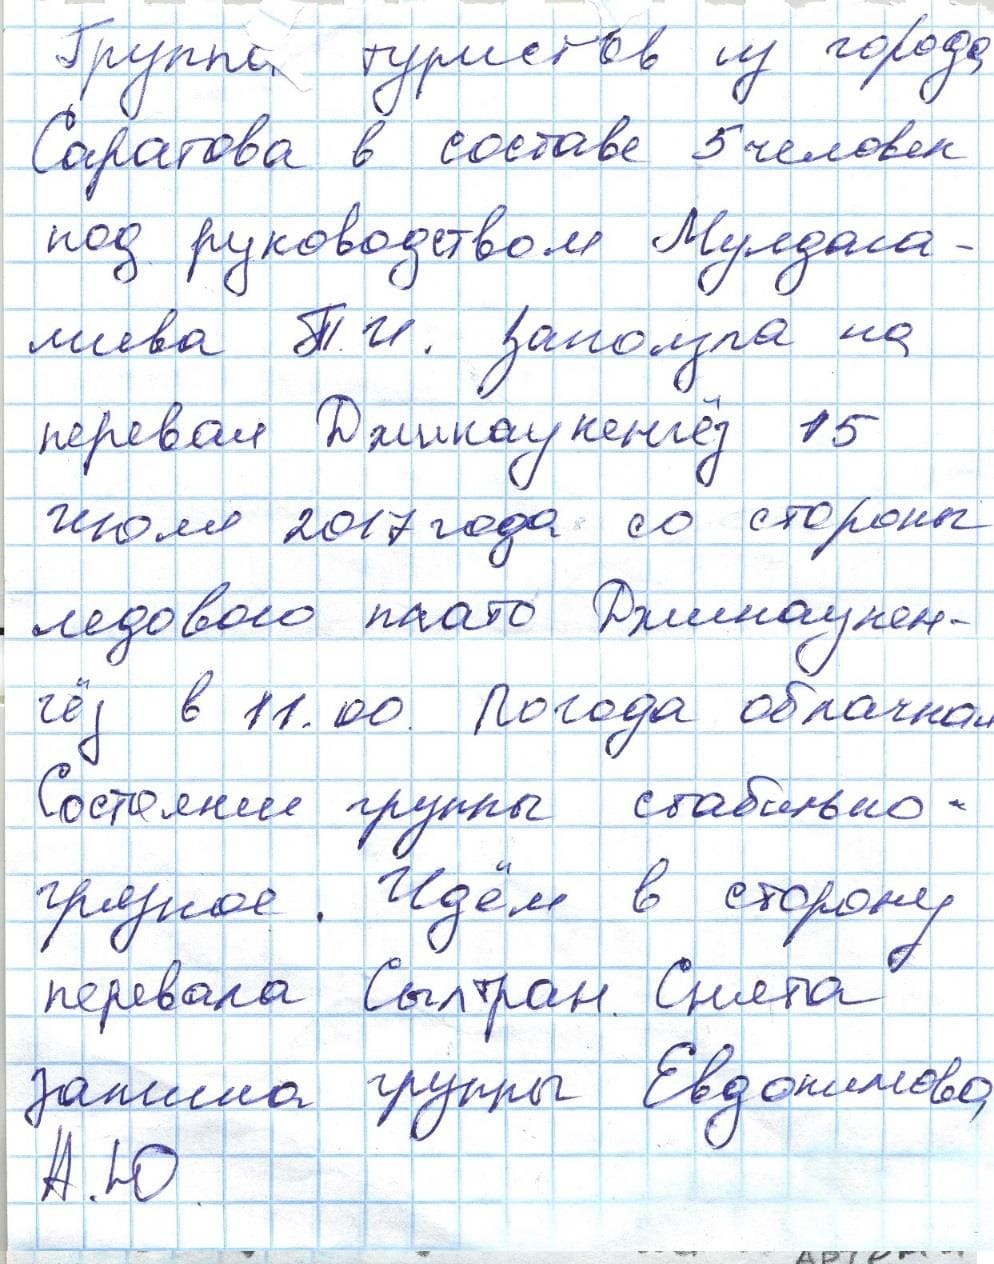 Группа туристов из города
Саратова в составе 5 человек
под руководством Мулдага-
лиева Т.И. заползла на
перевал Джикаугенгёз 15
июля 2017 года со стороны
ледового плато Джикауген-
гёз в 11.00. Погода облачная
Состояние группы стабильно-
грязное. Идём в сторону
перевала Сылтран. Снята
записка группы Евдокимова
А.Ю.